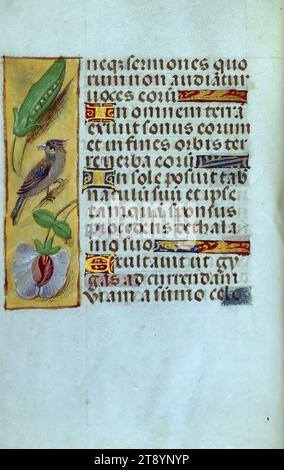 neq; sermones quo
rum non audiātur
uoces eorū
In omnem terrā
exiuit sonus eorum
et in fines orbis ter
re uerba eorū
In sole posuit tab
naculū suū et ipse
tamquā sponsus
procedens de thala
mo suo
Exultauit ut gy
gas ad currendam
viam a sūmo celo
alamy
Image ID: 2T8YNYP
www.alamy.com